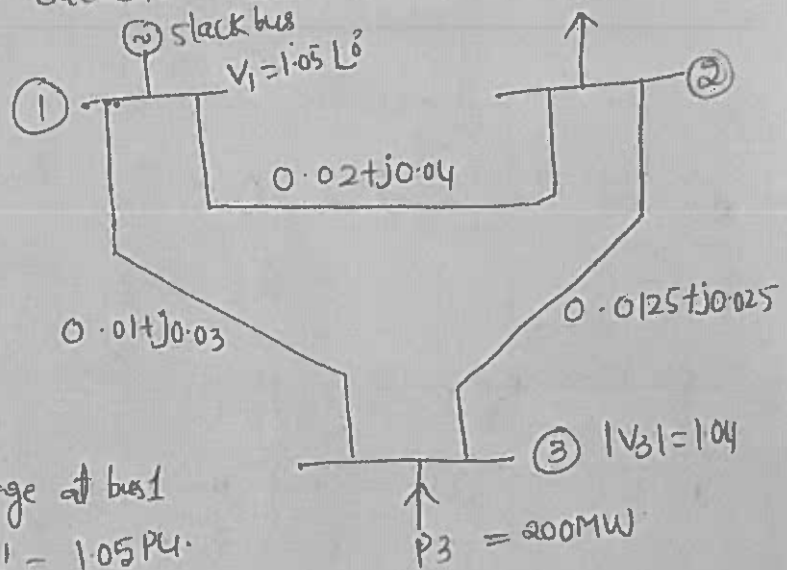 ~ slack bus
V₁ = 1.05 ∠0°
1
2
0.02+j0.04
0.01+j0.03
0.0125+j0.025
3 |V3| = 1.04
at bus1
= 1.05 PU.
P3 = 200MW